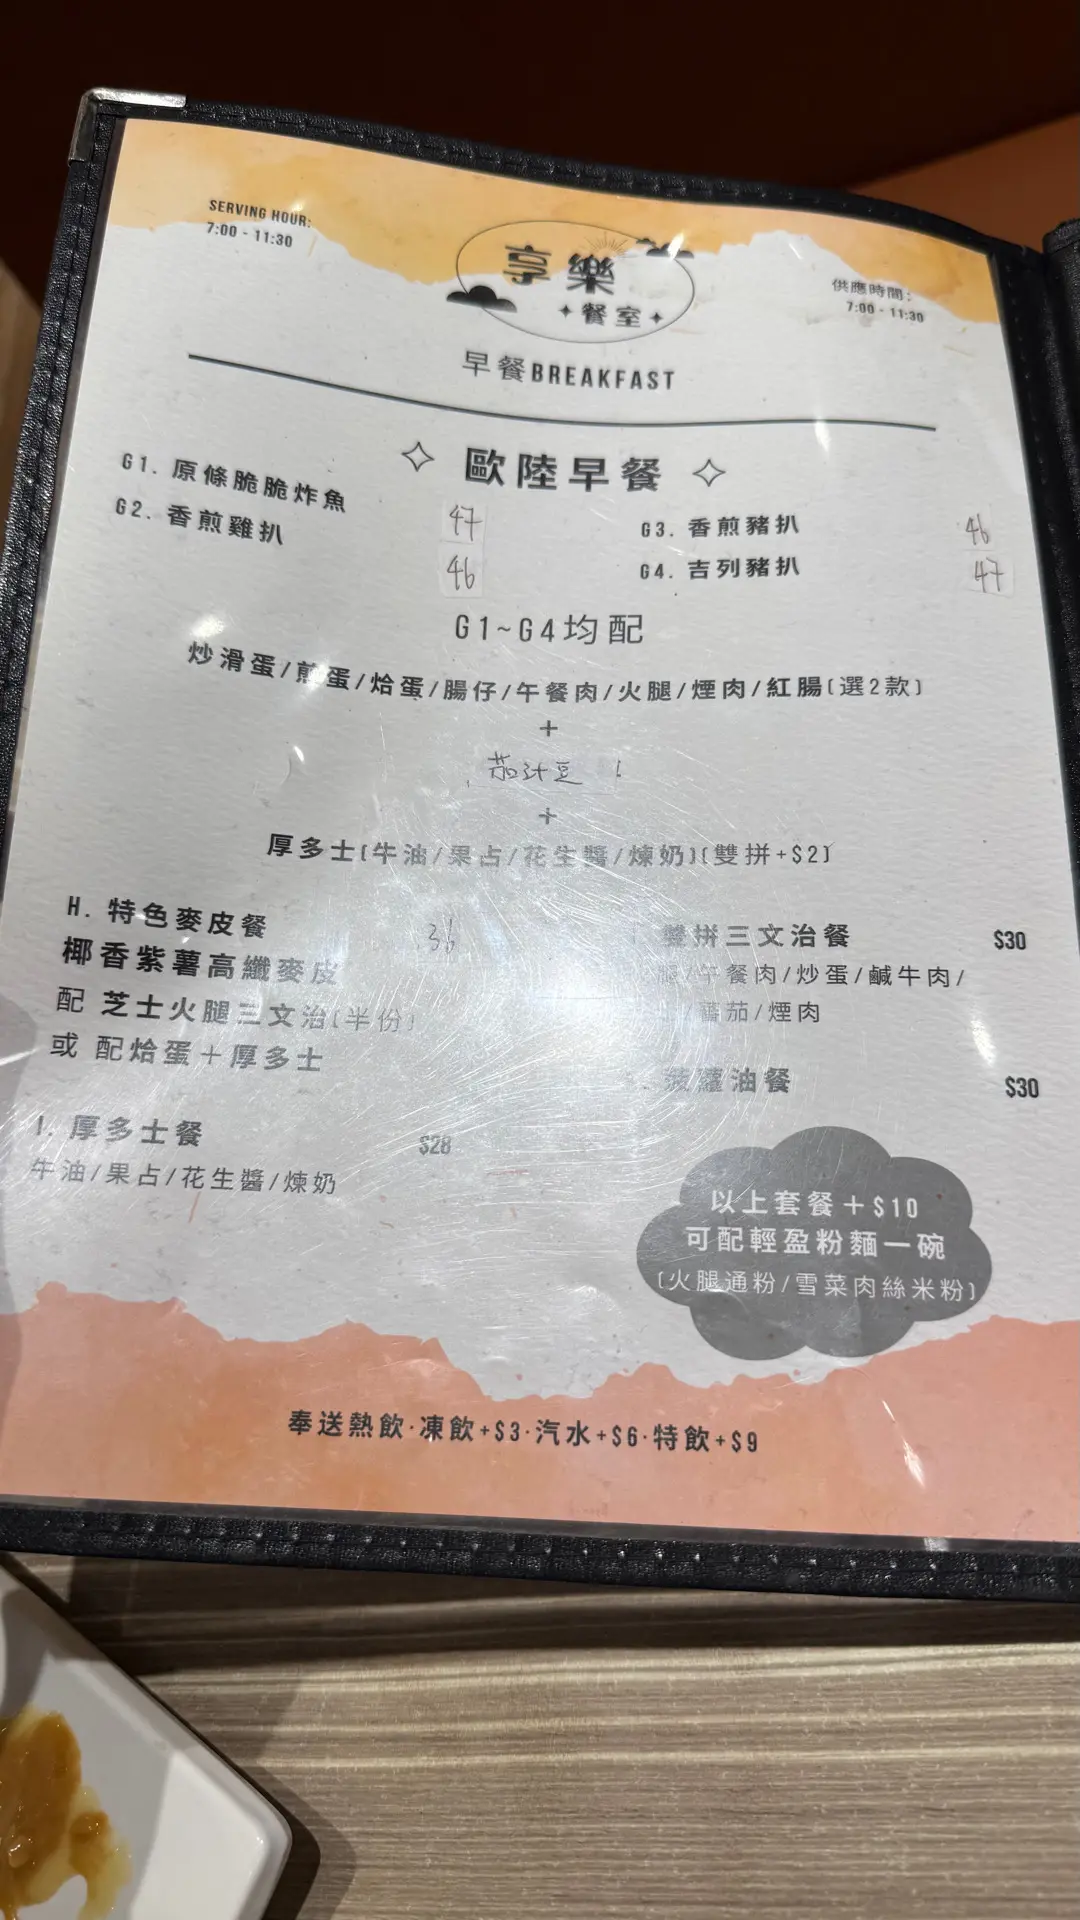 SERVING HOUR:
7:00 - 11:30
享樂
餐室
供應時間:
7:00 - 11:30
早餐BREAKFAST
歐陸早餐
G1. 原條脆脆炸魚 47
G2. 香煎雞扒 46
G3. 香煎豬扒 46
G4. 吉列豬扒 47
G1~G4均配
炒滑蛋/煎蛋/烚蛋/腸仔/午餐肉/火腿/煙肉/紅腸(選2款)
+
茄汁豆
+
厚多士(牛油/果占/花生醬/煉奶)(雙拼+$2)
H. 特色麥皮餐 36
椰香紫薯高纖麥皮
配 芝士火腿三文治(半份)
或 配烚蛋+厚多士
I. 厚多士餐 $28
牛油/果占/花生醬/煉奶
雙拼三文治餐 $30
腿/午餐肉/炒蛋/鹹牛肉/
/蕃茄/煙肉
菠蘿油餐 $30
以上套餐+$10
可配輕盈粉麵一碗
(火腿通粉/雪菜肉絲米粉)
奉送熱飲·凍飲+$3·汽水+$6·特飲+$9